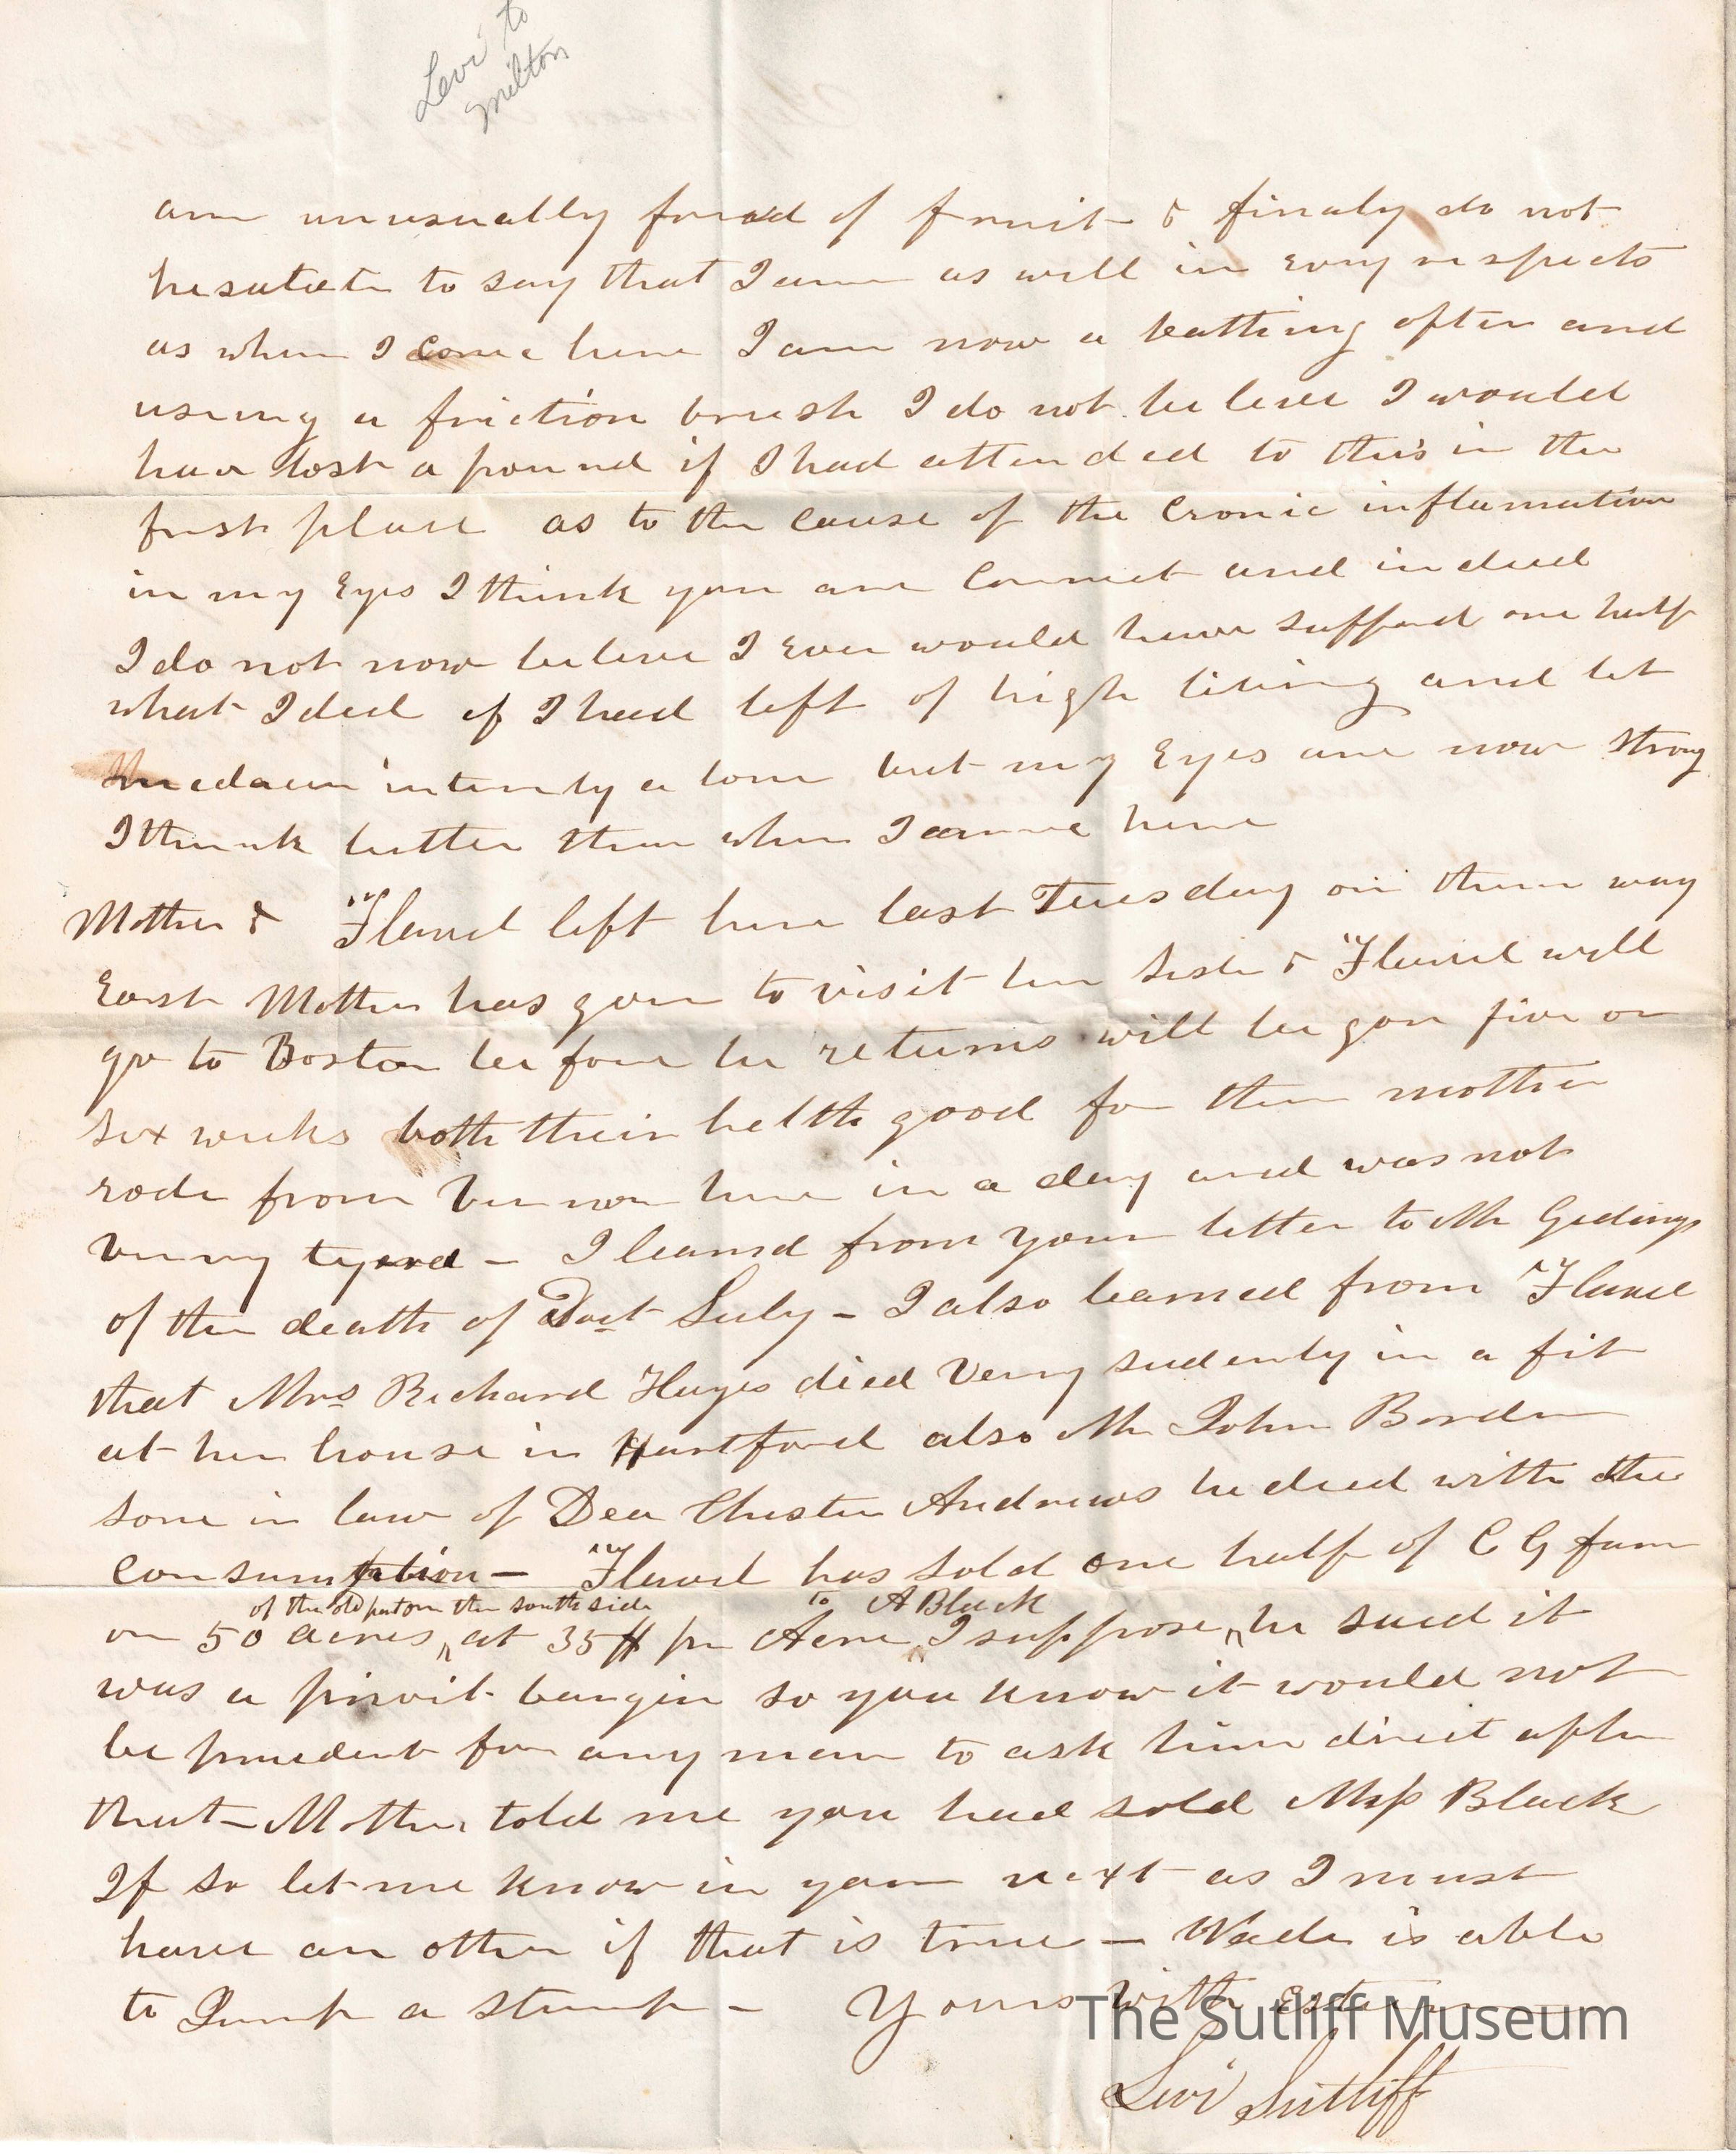 Levi to
Milton
am unusually fond of fruit & finaly do not
hesatate to say that I am as well in evry respects
as when I come here I am now a batthing often and
useing a friction brush I do not beleve I would
have lost a pound if I had attended to this in the
first place as to the cause of the Cronic inflamation
in my Eyes I think you are Correct and indeed
I do not now beleve I ever would have sufferd one half
what I did if I had left of high living and let
medacin intirely a lone but my Eyes are now strong
I think better than when I came here
Mother & Flavel left here last Tuesday on there way
East Mother has gone to visit her sister & Flavel will
go to Boston before he returns will be gon five or
six weeks both their helth good for them mother
rode from Vernon here in a day and was not
verry tyerd – I learnd from your letter to Mr Gidings
of the death of Doct Seely – I also learned from Flavel
that Mrs Richard Hayes died Verry sudenly in a fit
at her house in Hartford also Mr John Borden
sone in law of Dea Chester Andrews he died with the
Consumtion – Flavel has sold one half of C G farm
of the old part on the south side to A Black
or 50 acres at 35 $ per Acre I suppose he said it
was a privit bargin so you know it would not
be prudent for any man to ask him direct after
that – Mother told me you had sold Miss Black
If so let me know in your next as I must
have an other if that is true – Wade is able
to Jump a stump – Yours with Esteem
Levi Sutliff
The Sutliff Museum